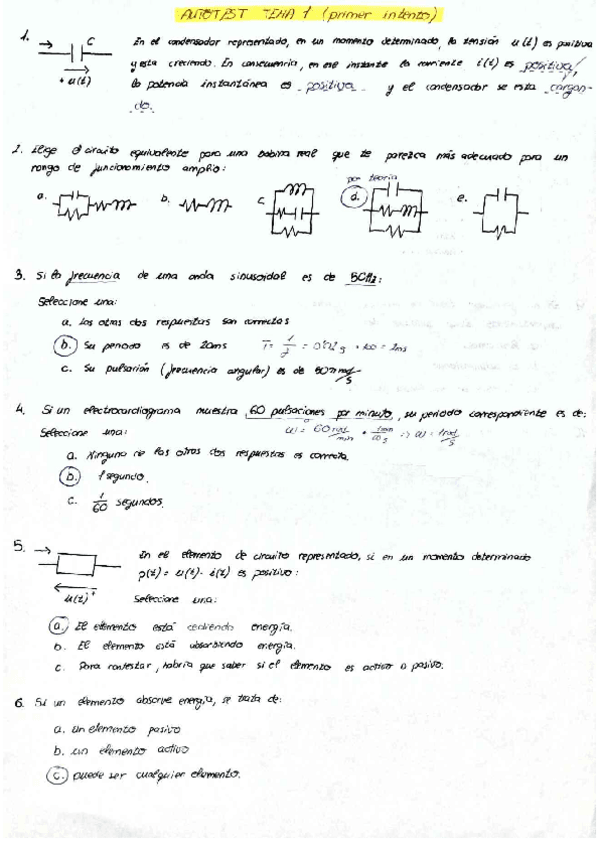 AUTOTEST TEMA 1 (primer intento)
1. C + u(t) En el condensador representado, en un momento determinado, la tensión u(t) es positiva
y esta creciendo. En consecuencia, en ese instante la corriente i(t) es positiva,
la potencia instantánea es positiva y el condensador se esta cargan-
do.
2. Elige el circuito equivalente para una bobina real que te parezca más adecuado para un
rango de funcionamiento amplio:
por teoría
a. b. c. d. e.
3. Si la frecuencia de una onda sinusoidal es de 50Hz:
Seleccione una:
a. Las otras dos respuestas son correctas
b. Su periodo es de 20ms T= 1/f =
c. Su pulsación (frecuencia angular) es de 50π rad/s
4. Si un electrocardiograma muestra 60 pulsaciones por minuto, su periodo correspondiente es de:
Seleccione una: ω = 60 rad/min · 1min/60s => ω = 1rad/s
a. Ninguna de las otras dos respuestas es correcta.
b. 1 segundo.
c. 1/60 segundos.
5. En el elemento de circuito representado, si en un momento determinado
p(t) = u(t)· i(t) es positivo:
u(t) + Seleccione una:
a. El elemento está cediendo energía.
b. El elemento está absorbiendo energía.
c. Para contestar, habría que saber si el elemento es activo o pasivo.
6. Si un elemento absorve energía, se trata de:
a. un elemento pasivo
b. un elemento activo
c. puede ser cualquier elemento.